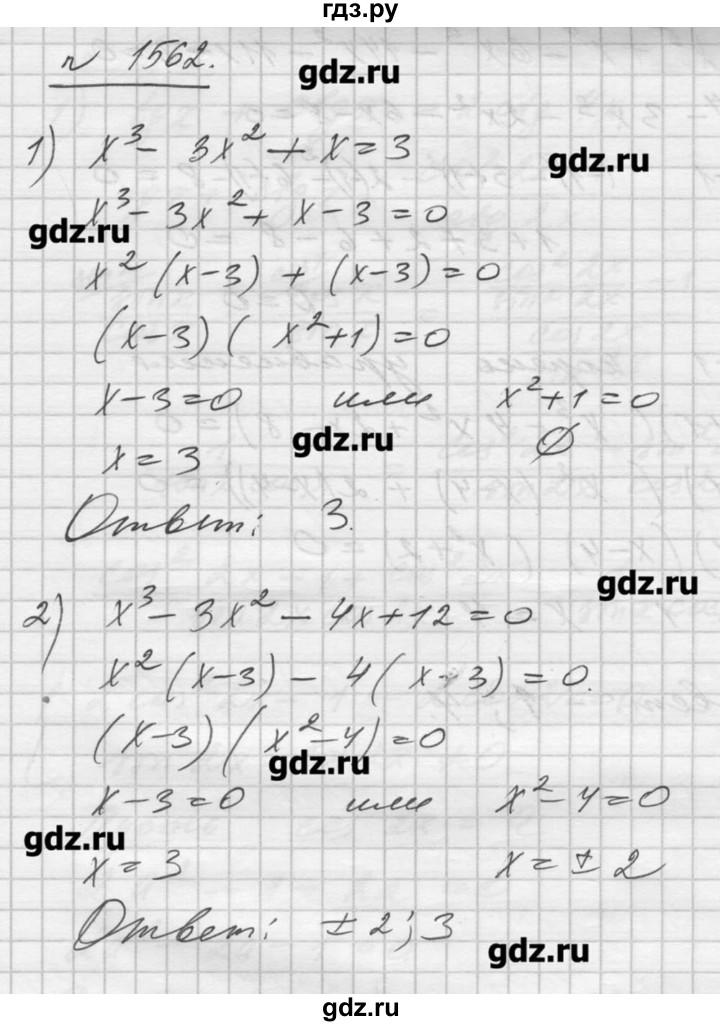 гдз.ру
n 1562.
gdz.ru
1) x³ - 3x² + x = 3
gdz.ru
x³ - 3x² + x - 3 = 0
gdz.ru
x² (x-3) + (x-3) = 0
(x-3) ( x²+1) = 0
x-3=0 или x²+1=0
gdz.ru
x = 3 ∅
Ответ: 3.
gdz.ru
2) x³ - 3x² - 4x+12 = 0
x² (x-3) - 4 ( x-3) = 0.
(x-3) ( x²-4) = 0
gdz.ru
x-3=0 или x²-4=0
gdz.ru
x = 3 x = ± 2
Ответ: ± 2; 3
gdz.ru
gdz.ru